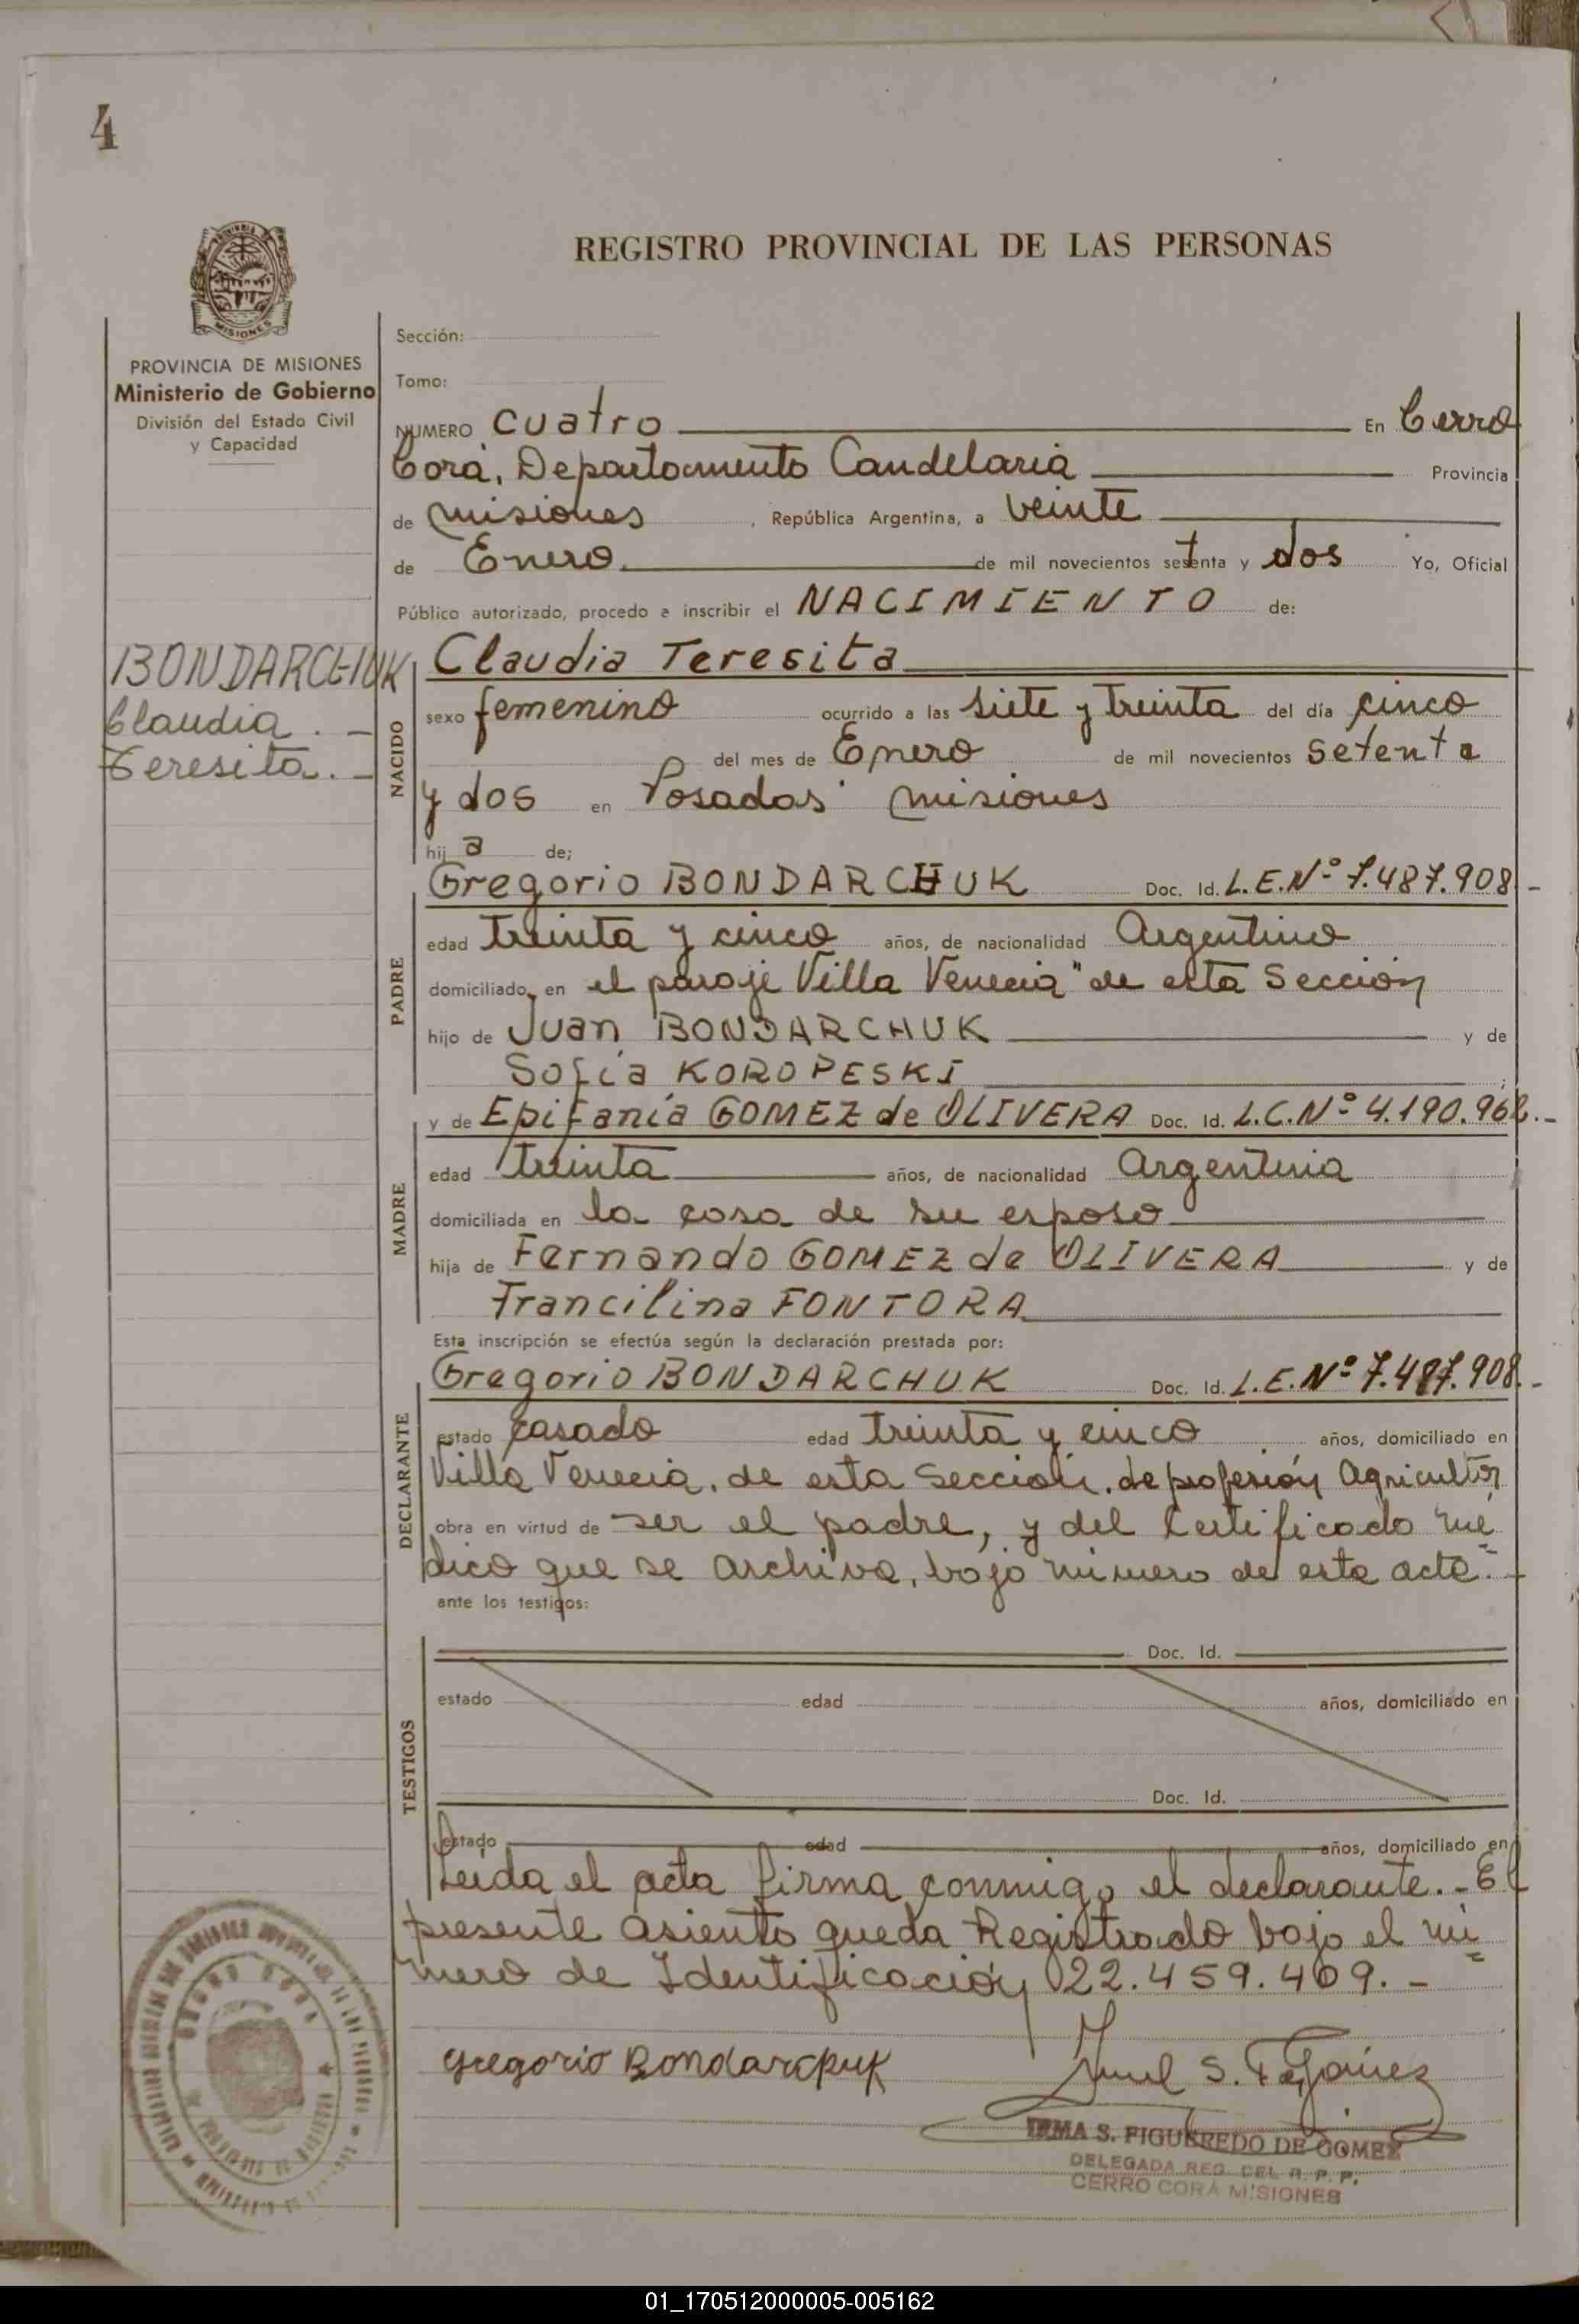 4
REGISTRO PROVINCIAL DE LAS PERSONAS
MISIONES
PROVINCIA DE MISIONES
Ministerio de Gobierno
División del Estado Civil
y Capacidad
Sección:
Tomo:
NUMERO cuatro En Cerro
Corá, Departamento Candelaria Provincia
de misiones, República Argentina, a veinte
de Enero de mil novecientos setenta y dos Yo, Oficial
Público autorizado, procedo a inscribir el NACIMIENTO de:
BONDARCHUK
Claudia . -
Teresita. -
NACIDO
Claudia Teresita
sexo femenino ocurrido a las siete y treinta del día cinco
del mes de Enero de mil novecientos setenta
y dos en Posadas misiones
hij a de;
PADRE
Gregorio BONDARCHUK Doc. Id. L.E.Nº 7.487.908 -
edad treinta y cinco años, de nacionalidad Argentino
domiciliado en el paraje Villa Venecia" de esta Sección
hijo de Juan BONDARCHUK y de
Sofía KOROPESKI ;
MADRE
y de Epifanía GOMEZ de OLIVERA Doc. Id. L.C.Nº 4.190.962.-
edad treinta años, de nacionalidad Argentina
domiciliada en la casa de su esposo
hija de Fernando GOMEZ de OLIVERA y de
Francilina FONTORA
Esta inscripción se efectúa según la declaración prestada por:
DECLARANTE
Gregorio BONDARCHUK Doc. Id. L.E.Nº 7.487.908.-
estado casado edad treinta y cinco años, domiciliado en
Villa Venecia, de esta Sección, de profesión Agricultor
obra en virtud de ser el padre, y del Certificado mé
dico que se archiva, bajo número de esta acta.-
ante los testigos:
TESTIGOS
Doc. Id.
estado edad años, domiciliado en
Doc. Id.
estado edad años, domiciliado en
Leída el acta firma conmigo el declarante.- El
presente asiento queda Registrado bajo el nú=
mero de Identificación 22.459.409.-
gregorio Bondarchuk
IRMA S. FIGUEREDO DE GOMEZ
DELEGADA REG. DEL R. P. P.
CERRO CORÁ MISIONES
01_170512000005-005162